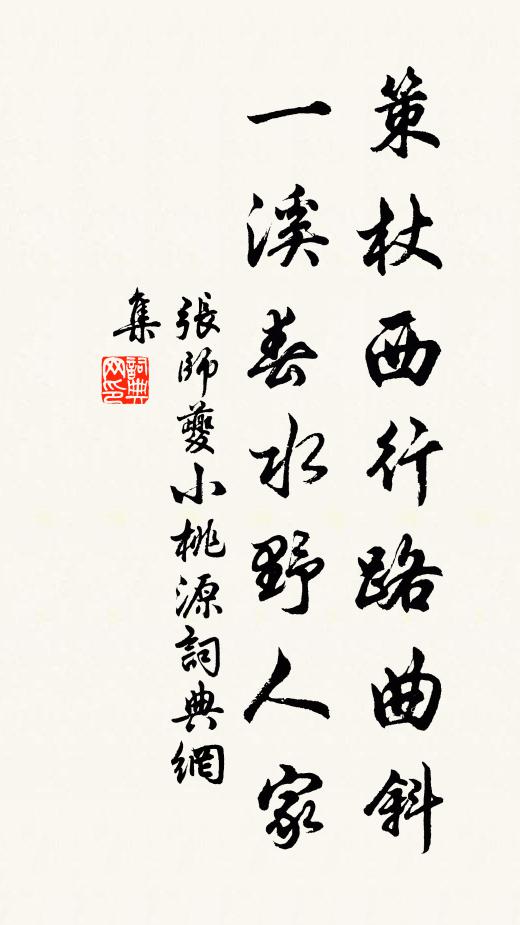 策杖西行路曲斜
一溪春水野人家
張師夔小桃源詞典網
集
詞典
网印